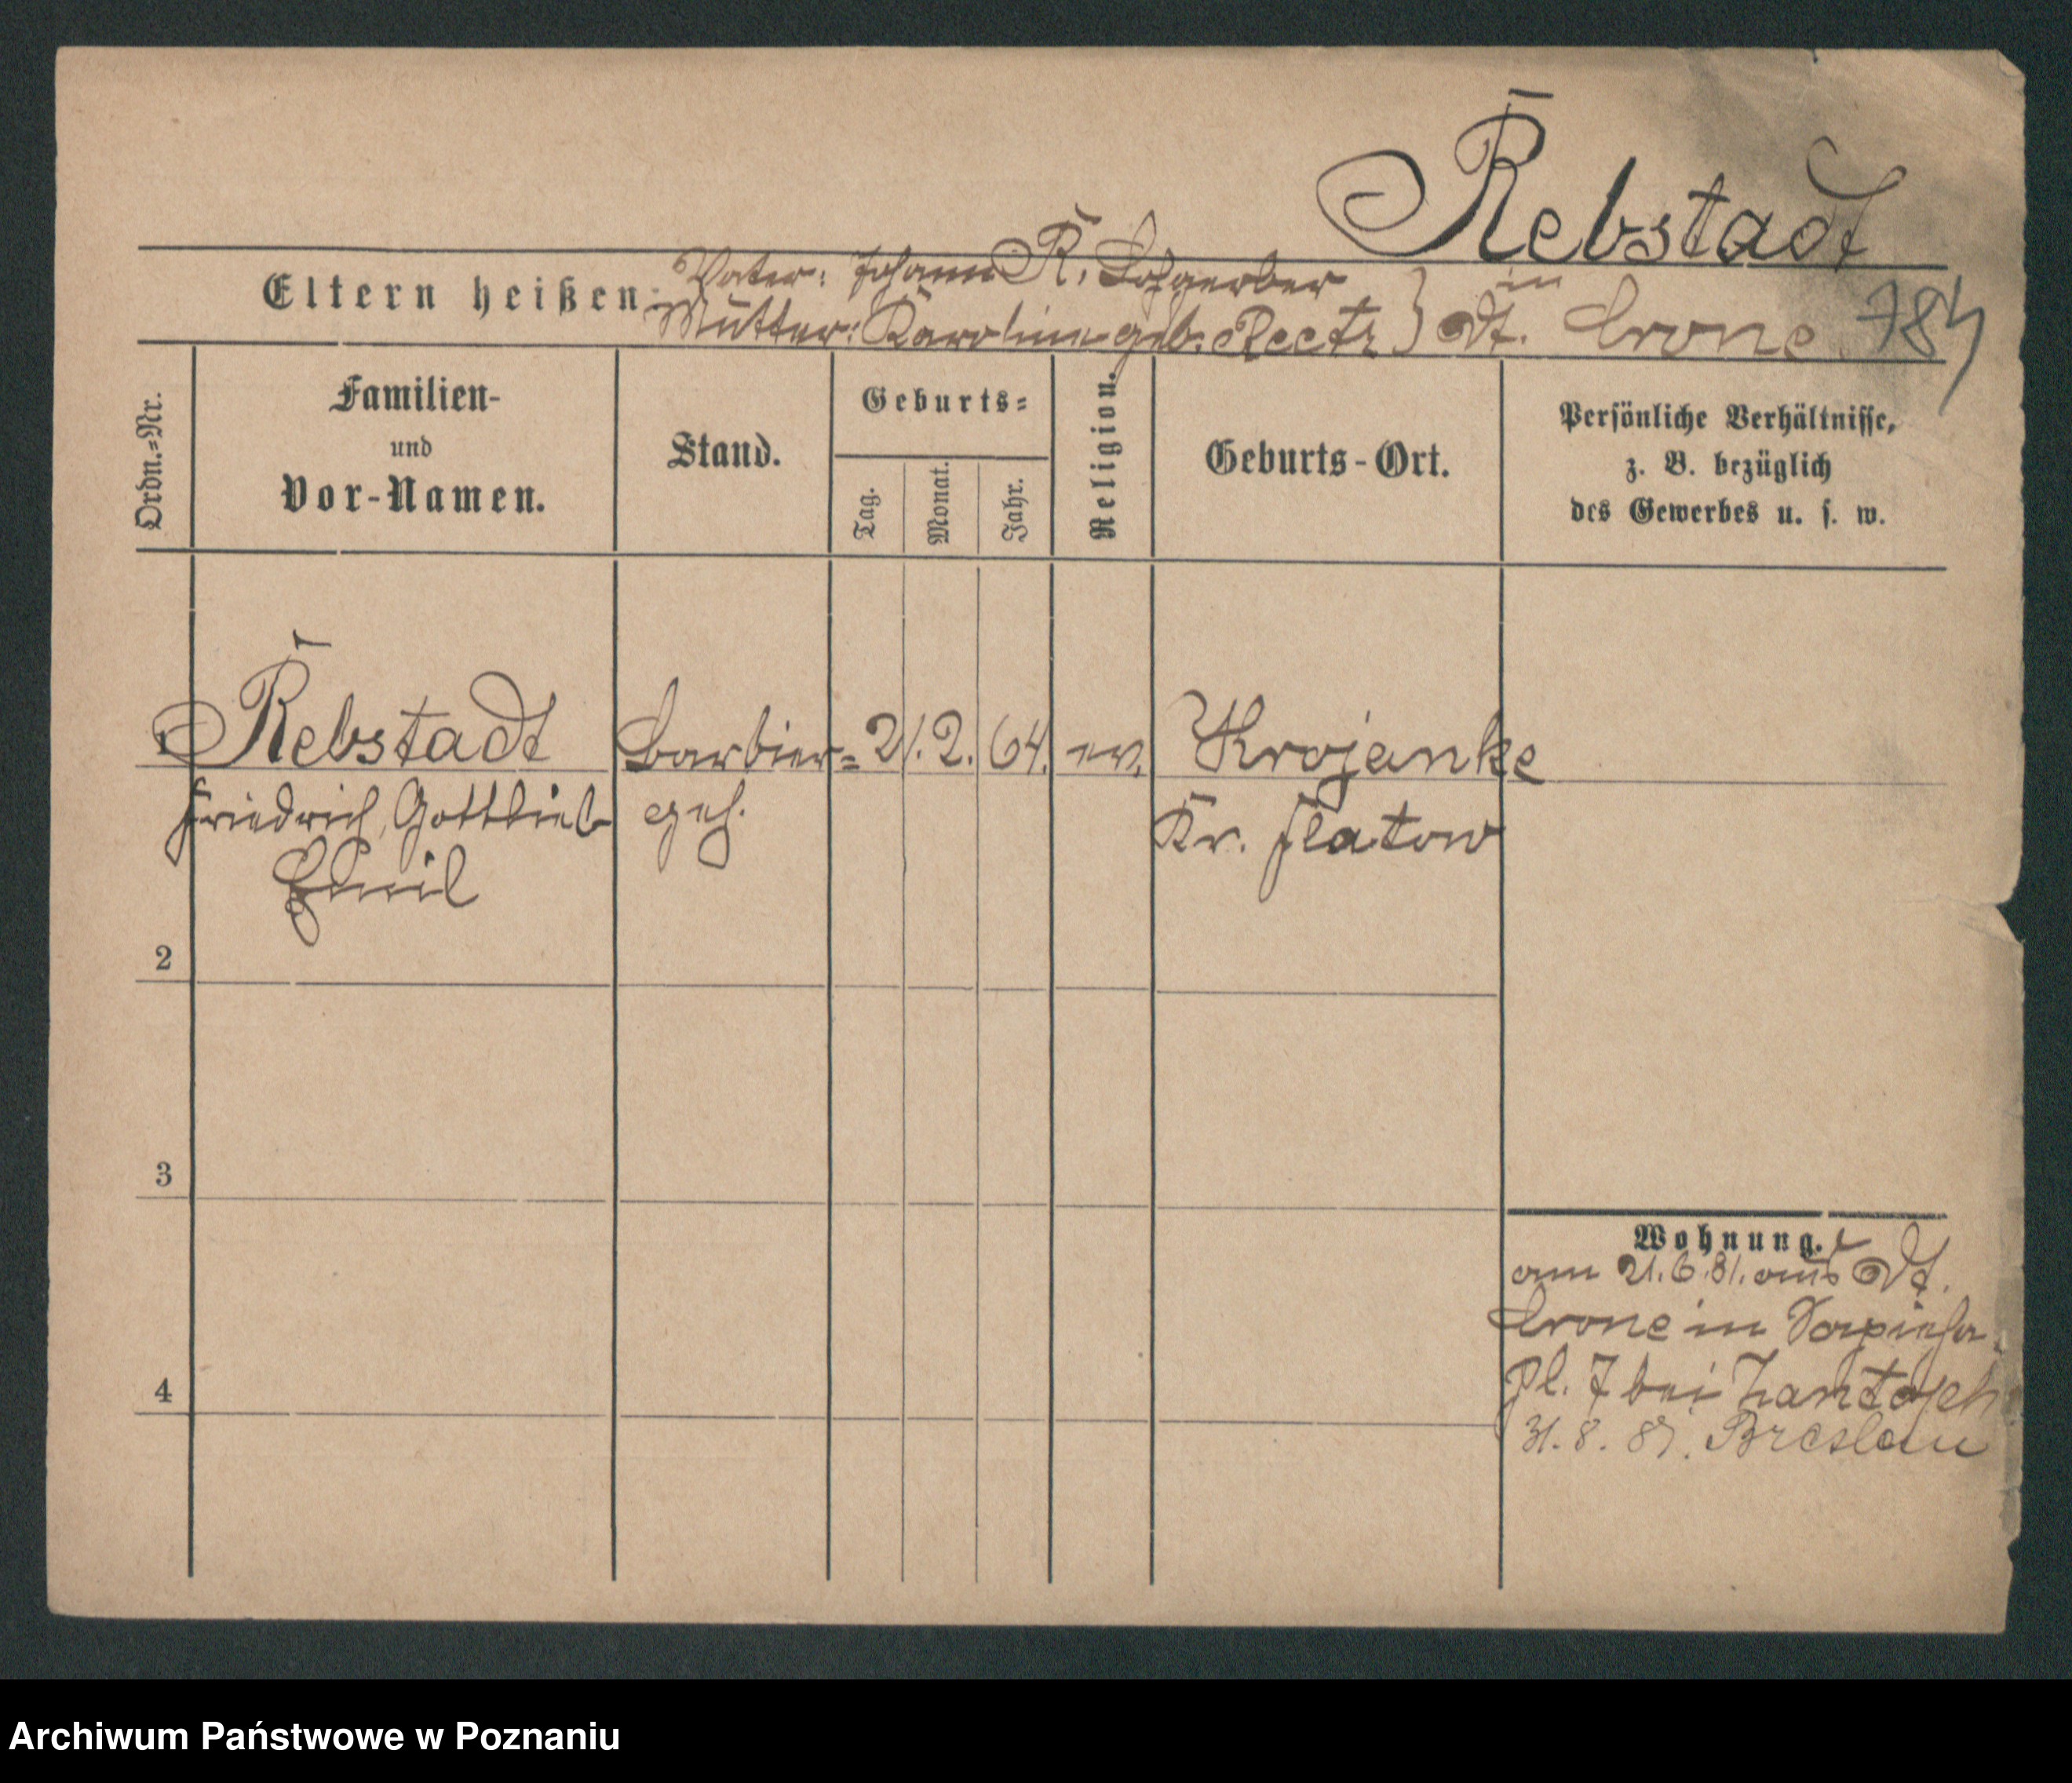 Rebstadt
Eltern heißen: Vater: Johann R. Lohgerber
in
Mutter: Karoline geb. Reetz } Dt. Crone.
Ordn.=Nr.
Familien-
und
Vor-Namen.
Stand.
Geburts=
Tag.
Monat.
Jahr.
Religion.
Geburts-Ort.
Persönliche Verhältnisse,
z. B. bezüglich
des Gewerbes u. s. w.
1 Rebstadt Barbier= 21. 2. 64. ev. Krojanke
Friedrich, Gottlieb geh. Kr. Flatow
Emil
2
3
4
Wohnung.
am 21.6.81. aus Dt.
Crone in Sapieha
pl. 7 bei
31. 8. Breslau
Archiwum Państwowe w Poznaniu